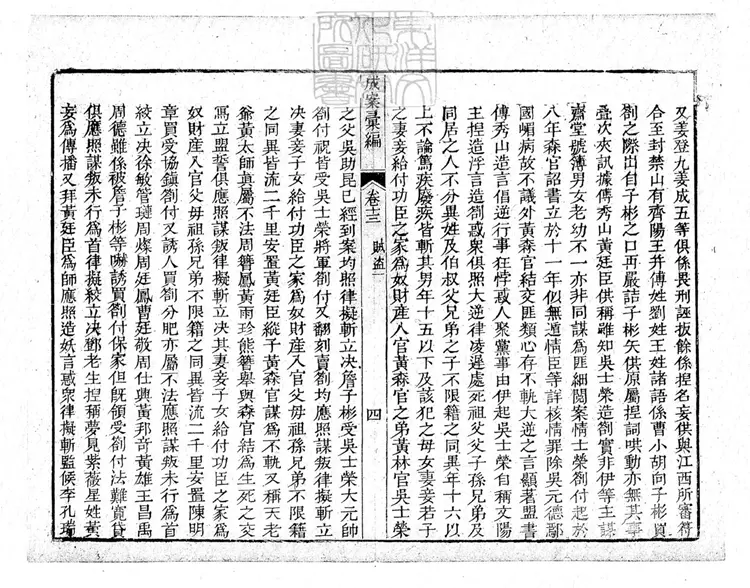 又姜登九姜成五等俱係畏刑誣扳餘係捏名妄供與江西所審符
合至封禁山有齊陽王并傅姓劉姓王姓諸語係曹小胡向子彬買
劄之際出自子彬之口再嚴詰子彬矢供原屬捏詞哄動亦無其事
疊次夾訊據傅秀山黃廷臣供稱雖知吳士榮造劄實非伊等主謀
齋堂號簿男女老幼不一亦非同謀為匪細閱案情士榮劄付起於
八年森官詔書立於十一年似無遁情臣等詳核情罪除吳元德鄢
國媚病故不議外黃森官結交匪類心存不軌大逆之言顯著盟書
傅秀山造言倡逆行事狂悖惑人聚黨事由伊起吳士榮自稱文陽
王捏造浮言造劄惑眾俱照大逆律凌遲處死祖父父子孫兄弟及
同居之人不分異姓及伯叔父兄弟之子不限籍之同異年十六以
上不論篤疾廢疾皆斬其男年十五以下及該犯之母女妻妾若子
之妻妾給付功臣之家為奴財產入官黃森官之弟黃林官吳士榮
成案彙編
卷十三
賊盜
四
之父吳助昆已經到案均照律擬斬立決詹子彬受吳士榮大元帥
劄付祝皆受吳士榮將軍劄付又翻刻賣劄均應照謀叛律擬斬立
決妻妾子女給付功臣之家為奴財產入官父母祖孫兄弟不限籍
之同異皆流二千里安置黃廷臣縱子黃森官謀為不軌又稱天老
爺黃太師真屬不法周簪鳳黃雨珍熊簪舉與森官結為生死之交
寫立盟誓俱應照謀叛律擬斬立決其妻妾子女給付功臣之家為
奴財產入官父母祖孫兄弟不限籍之同異皆流二千里安置陳明
章買受協鎮劄付又誘人買劄分肥亦屬不法應照謀叛未行為首
絞立決徐敏管璉周燦周廷鳳曹廷敬周仕興黃邦奇黃雄王昌禹
周德雖係被詹子彬等嚇誘買劄付保家但既領受劄付法難寬貸
俱應照謀叛未行為首律擬絞立決鄧老生捏稱夢見紫薇星姓黃
妄為傳播又拜黃廷臣為師應照造妖言惑眾律擬斬監候李孔瑞